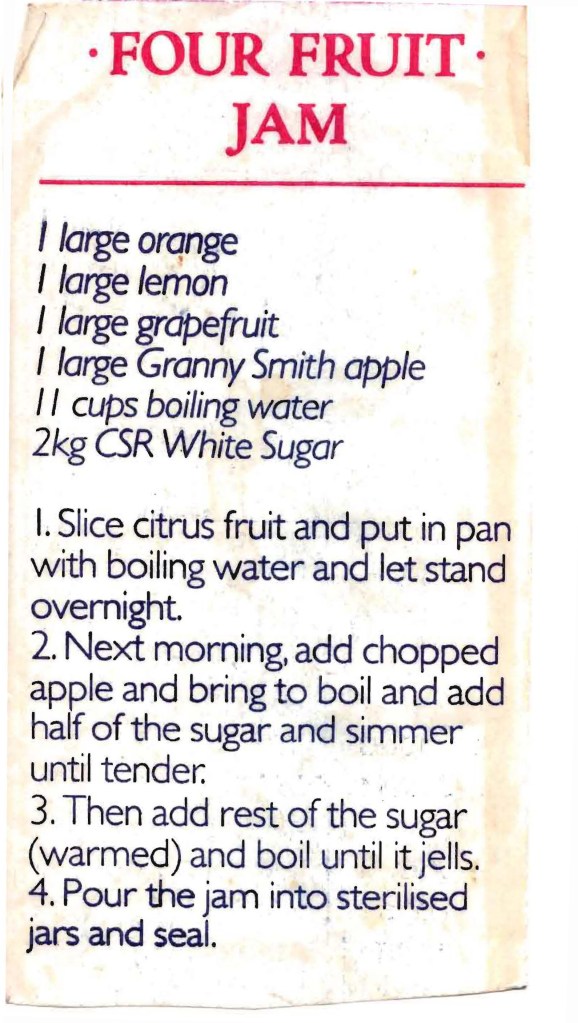 · FOUR FRUIT ·
JAM
1 large orange
1 large lemon
1 large grapefruit
1 large Granny Smith apple
11 cups boiling water
2kg CSR White Sugar
1. Slice citrus fruit and put in pan
with boiling water and let stand
overnight.
2. Next morning, add chopped
apple and bring to boil and add
half of the sugar and simmer
until tender.
3. Then add rest of the sugar
(warmed) and boil until it jells.
4. Pour the jam into sterilised
jars and seal.